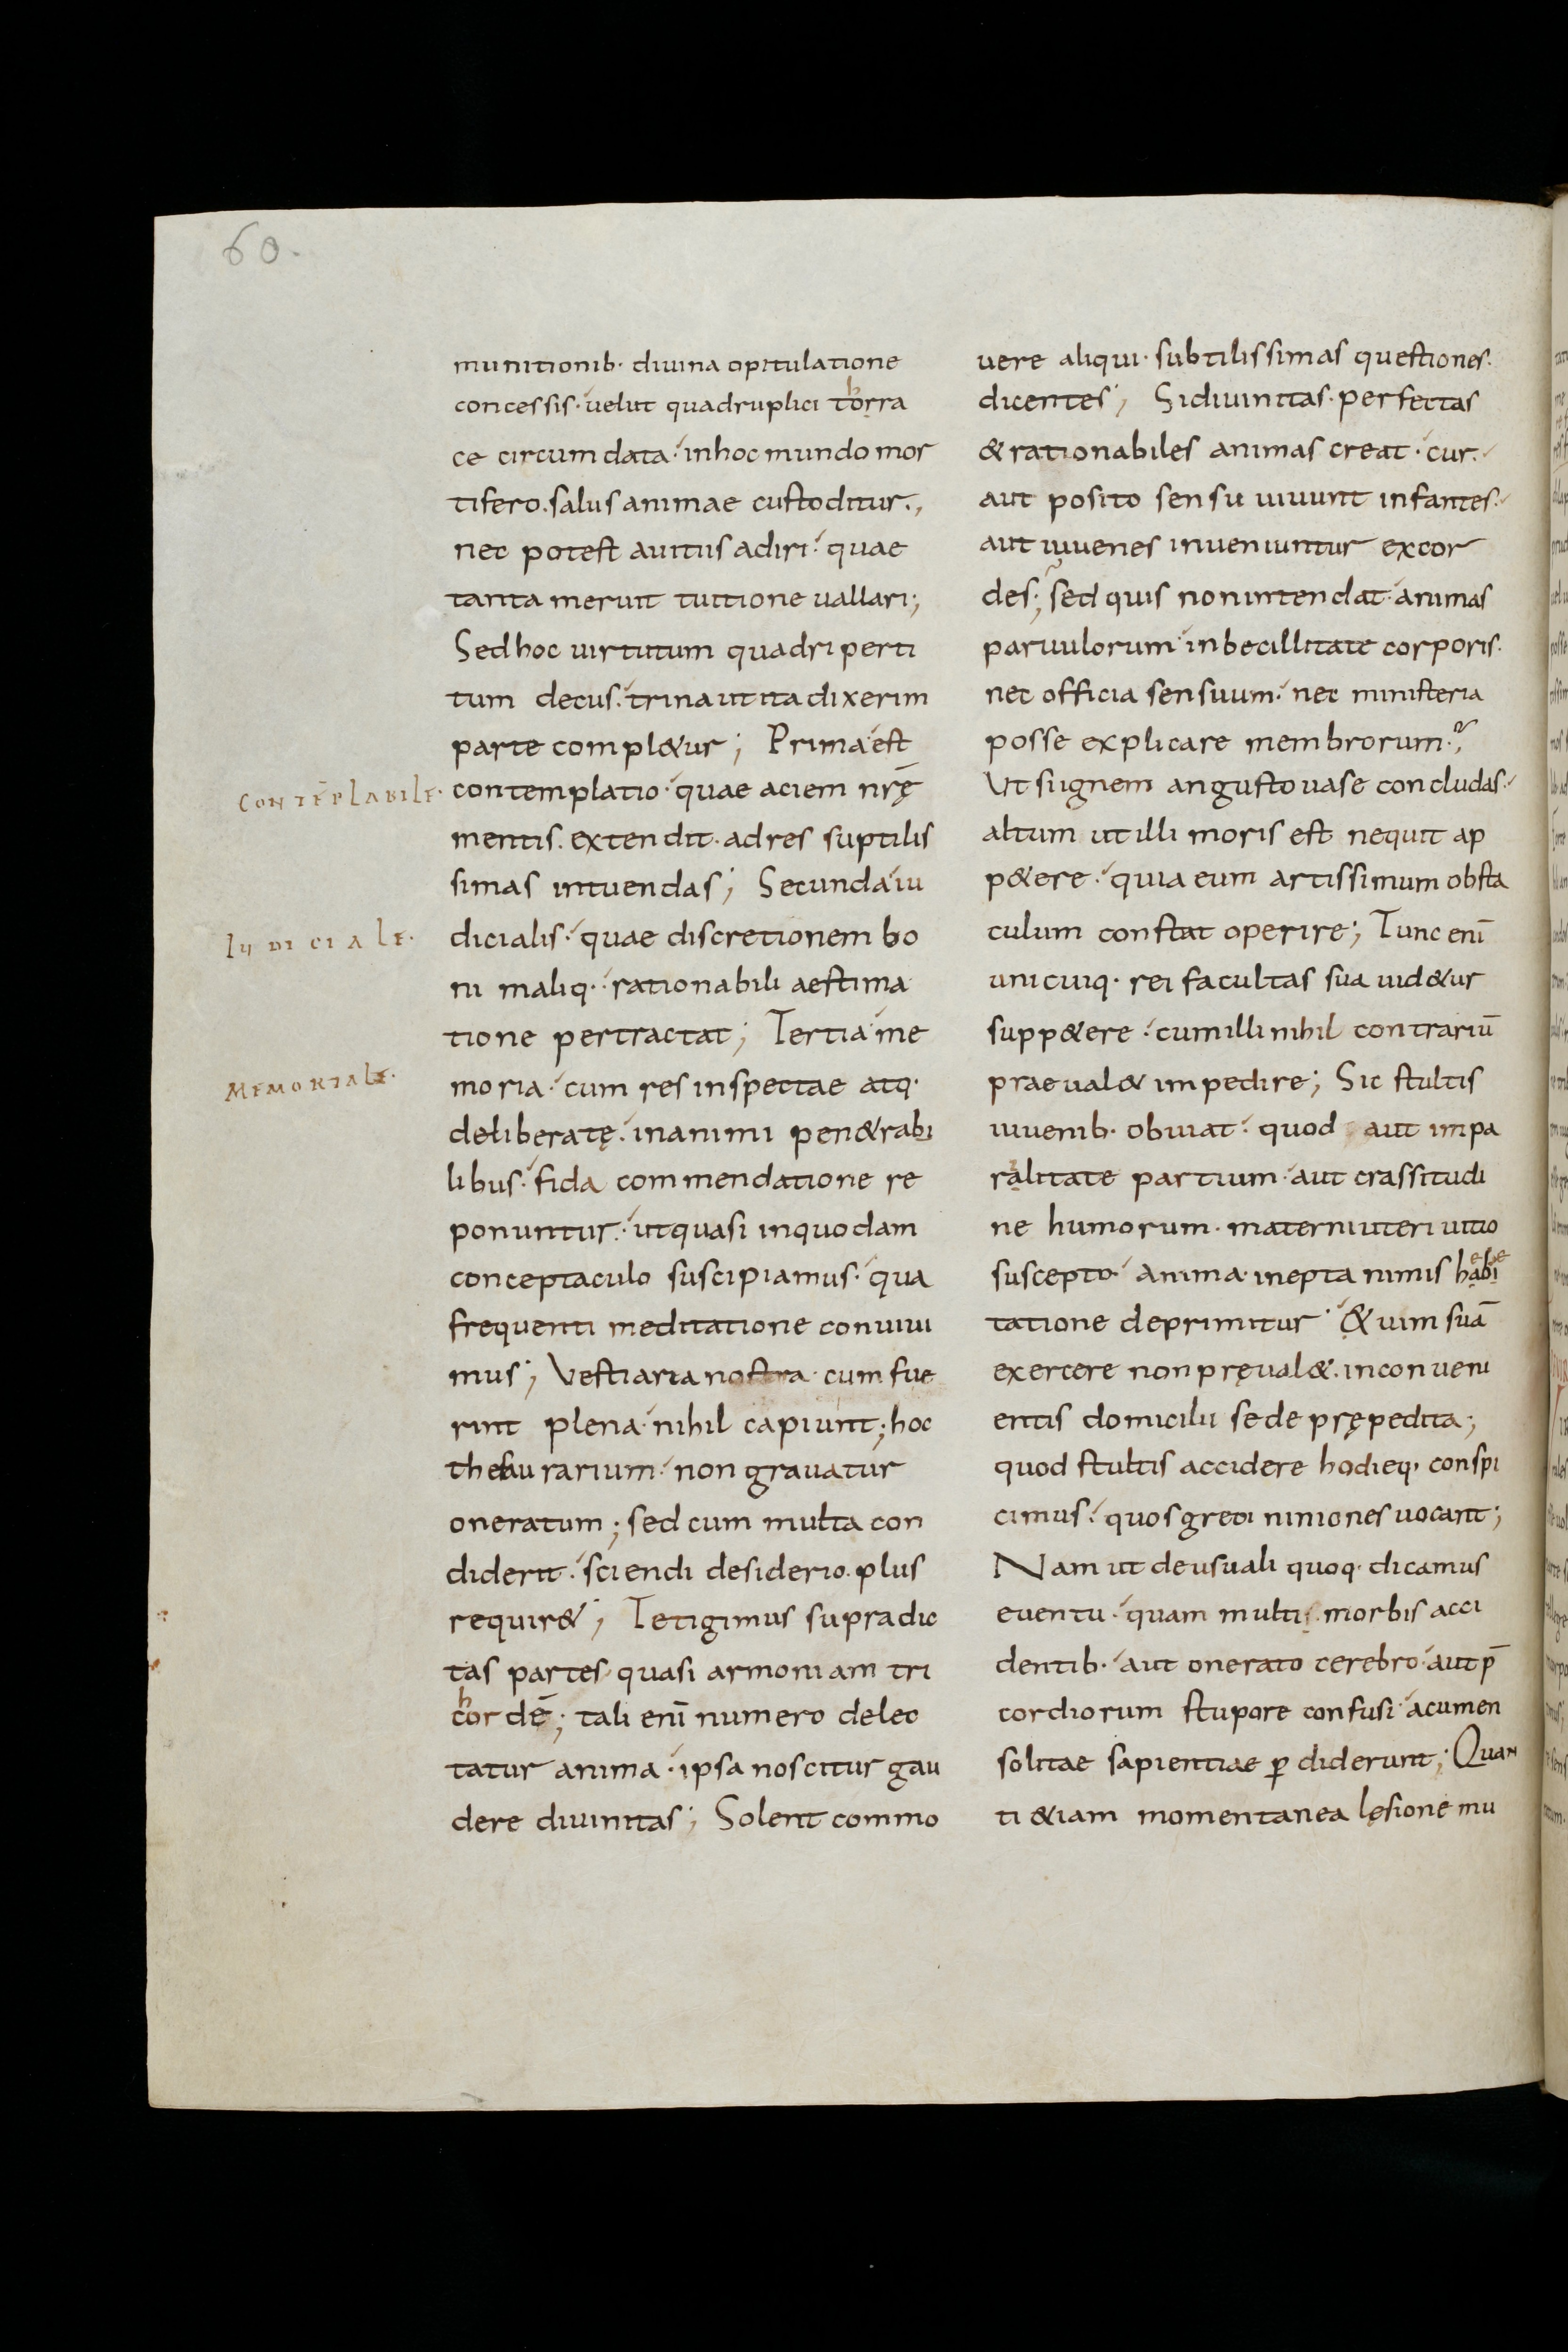 60.
munitionib· diuina opitulatione
concessis· uelut quadruplici torra
ce circumdata· inhoc mundo mor
tifero. salus animae custoditur.,
nec potest auitus adiri· quae
tanta meruit tuitione uallari;
Sed hoc uirtutum quadriperti
tum decus· trina ut ita dixerim
parte compl&ur; Prima est
CONTĒPLABILE·
contemplatio· quae aciem nrę̄
mentis. extendit· ad res suptilis
simas intuendas; Secunda iu
IUDICIALE·
dicialis· quae discretionem bo
ni maliq·· rationabili aestima
tione pertractat; Tertia me
MEMORIALE·
moria· cum res inspectae atq·
deliberatę· in animi pen&rabi
libus· fida commendatione re
ponuntur· ut quasi in quodam
conceptaculo suscipiamus· qua
frequenti meditatione conuiui
mus; Vestiaria nostra· cum fue
rint plena· nihil capiunt; hoc
thesaurarium· non grauatur
oneratum; sed cum multa con
diderit· sciendi desiderio. plus
requir&; Tetigimus supradic
tas partes· quasi armoniam tri
h
cordē; tali enī numero delec
tatur anima· ipsa noscitur gau
dere diuinitas; Solent commo
uere aliqui· subtilissimas questiones.
dicentes; Si diuinitas· perfectas
& rationabiles animas creat· cur·
aut posito sensu uiuunt infantes·
aut iuuenes inueniuntur excor
des; sed quis non intendat· animas
paruulorum· inbecillitate corporis·
nec officia sensuum· nec ministeria
posse explicare membrorum·,
Ut si ignem angusto uase concludas·
altum ut illi moris est nequit ap
p&ere· quia eum artissimum obsta
culum constat operire; Tunc enī
unicuiq· rei facultas sua uid&ur
supp&ere· cum illi nihil contrariū
praeual& impedire; Sic stultis
iuuenib· obuiat· quod aut impa
ralitate partium· aut crassitudi
ne humorum· materni uteri uitio
suscepto· anima· inepta nimis habi
tatione deprimitur· & uim suā
exercere non pręual&· inconueni
entis domicilii sede prępedita;
quod stultis accidere hodieq· conspi
cimus· quos greci niniones uocant;
Nam ut de usuali quoq· dicamus
euentu· quam multi· morbis acci
dentib· aut onerato cerebro· aut p̄
cordiorum stupore confusi· acumen
solitae sapientiae ꝑdiderunt; Quan
ti &iam momentanea lęsione mu